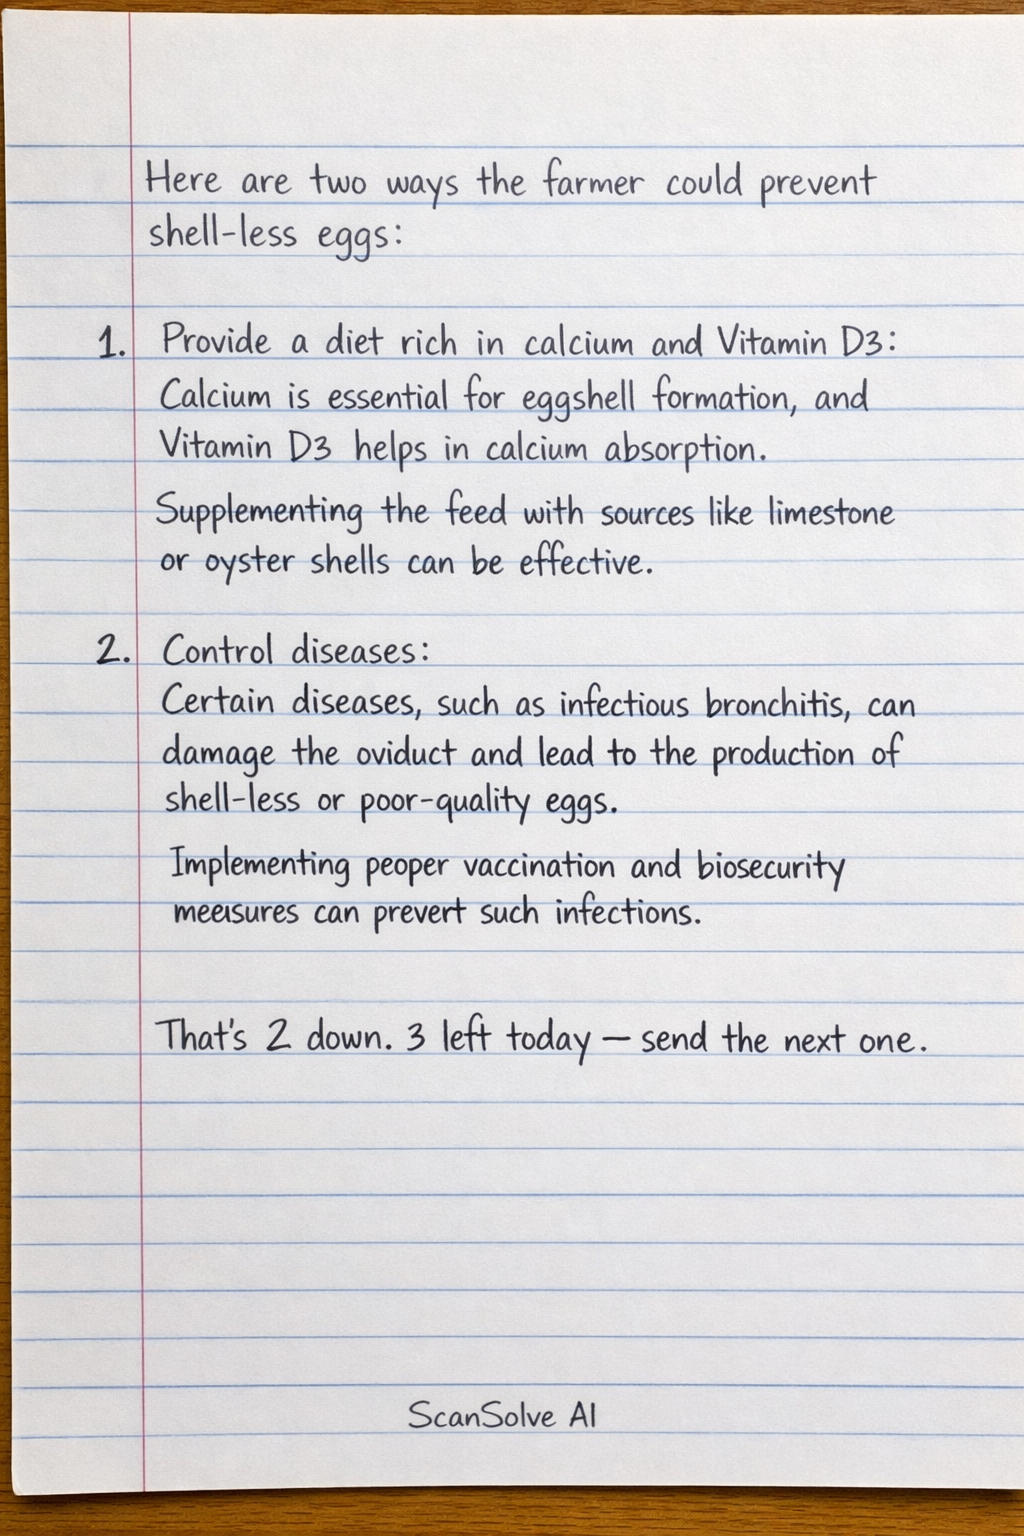 Here are two ways the farmer could prevent
shell-less eggs:
1. Provide a diet rich in calcium and Vitamin D3:
Calcium is essential for eggshell formation, and
Vitamin D3 helps in calcium absorption.
Supplementing the feed with sources like limestone
or oyster shells can be effective.
2. Control diseases:
Certain diseases, such as infectious bronchitis, can
damage the oviduct and lead to the production of
shell-less or poor-quality eggs.
Implementing peoper vaccination and biosecurity
meeisures can prevert such infections.
That's 2 down. 3 left today — send the next one.
ScanSolve AI